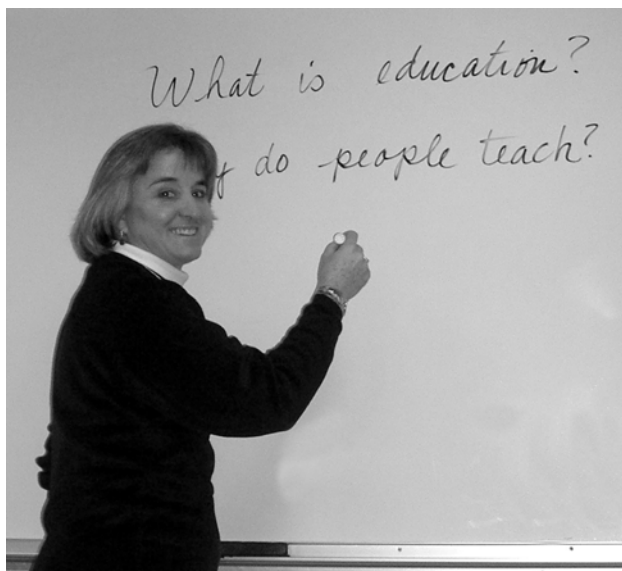 What is education?
do people teach?